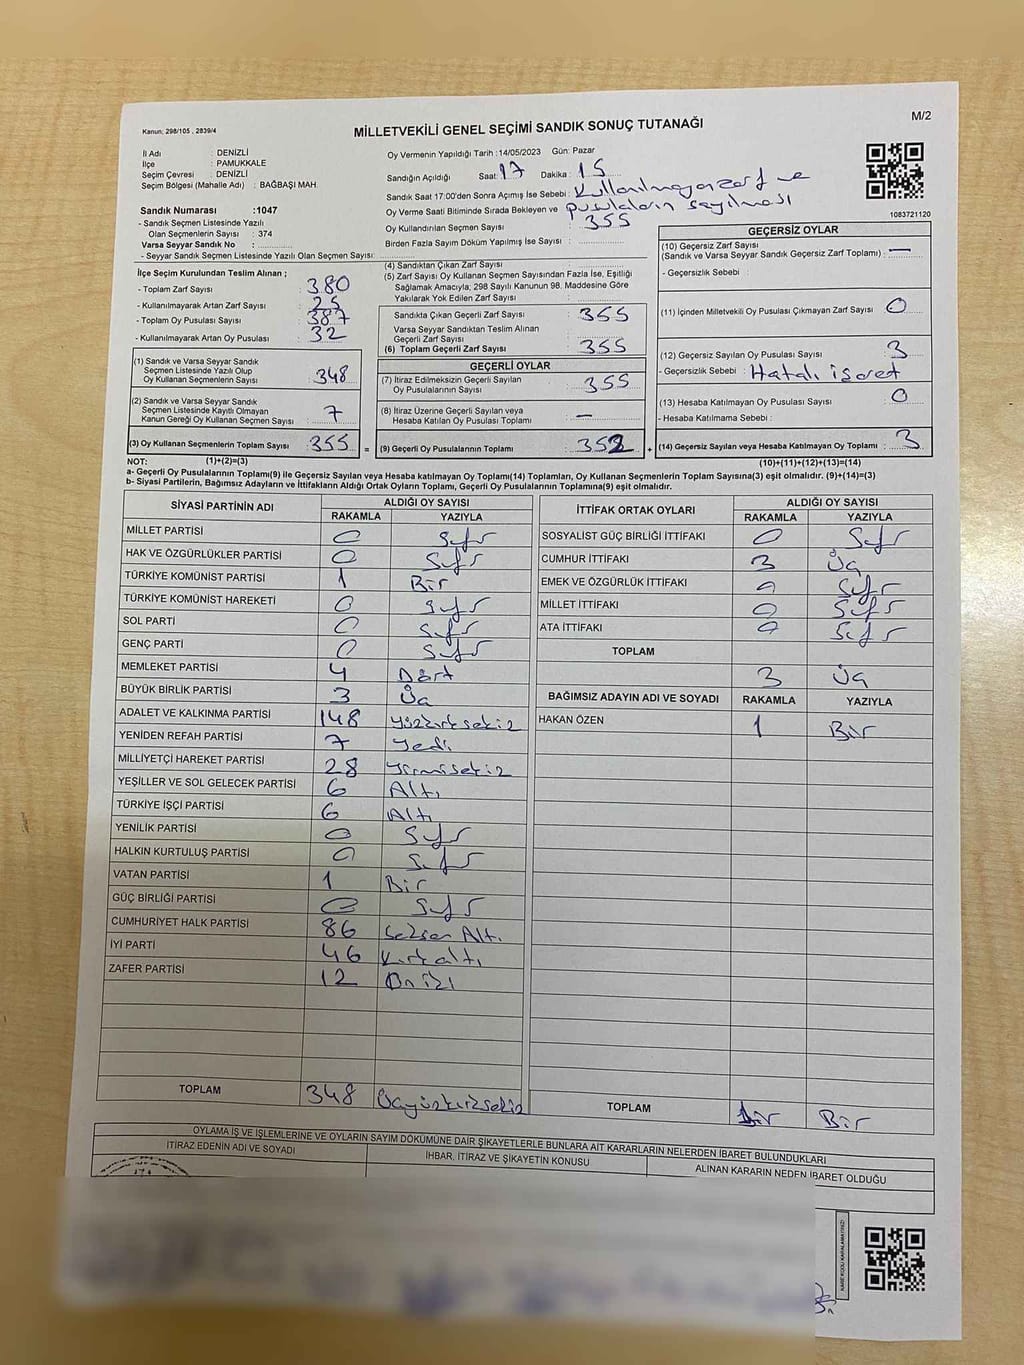 Kanun: 298/105 , 2839/4
M/2
MİLLETVEKİLİ GENEL SEÇİMİ SANDIK SONUÇ TUTANAĞI
İl Adı : DENİZLİ
İlçe : PAMUKKALE
Seçim Çevresi : DENİZLİ
Seçim Bölgesi (Mahalle Adı) : BAĞBAŞI MAH.
Sandık Numarası :1047
- Sandık Seçmen Listesinde Yazılı
Olan Seçmenlerin Sayısı : 374
Varsa Seyyar Sandık No :
- Seyyar Sandık Seçmen Listesinde Yazılı Olan Seçmen Sayısı:
Oy Vermenin Yapıldığı Tarih :14/05/2023 Gün: Pazar
Sandığın Açıldığı Saat: 17 Dakika : 15
Sandık Saat 17:00'den Sonra Açımış İse Sebebi : Kullanılmayan zarf ve
Oy Verme Saati Bitiminde Sırada Bekleyen ve pusulaların sayılması
Oy Kullandırılan Seçmen Sayısı : 355
Birden Fazla Sayım Döküm Yapılmış İse Sayısı :
1083721120
İlçe Seçim Kurulundan Teslim Alınan ;
- Toplam Zarf Sayısı : 380
- Kullanılmayarak Artan Zarf Sayısı : 25
- Toplam Oy Pusulası Sayısı : 387
- Kullanılmayarak Artan Oy Pusulası : 32
(1) Sandık ve Varsa Seyyar Sandık
Seçmen Listesinde Yazılı Olup
Oy Kullanan Seçmenlerin Sayısı : 348
(2) Sandık ve Varsa Seyyar Sandık
Seçmen Listesinde Kayıtlı Olmayan
Kanun Gereği Oy Kullanan Seçmen Sayısı : 7
(3) Oy Kullanan Seçmenlerin Toplam Sayısı : 355 =
(4) Sandıktan Çıkan Zarf Sayısı :
(5) Zarf Sayısı Oy Kullanan Seçmen Sayısından Fazla İse, Eşitliği
Sağlamak Amacıyla; 298 Sayılı Kanunun 98. Maddesine Göre
Yakılarak Yok Edilen Zarf Sayısı :
Sandıkta Çıkan Geçerli Zarf Sayısı : 355
Varsa Seyyar Sandıktan Teslim Alınan
Geçerli Zarf Sayısı :
(6) Toplam Geçerli Zarf Sayısı : 355
GEÇERLİ OYLAR
(7) İtiraz Edilmeksizin Geçerli Sayılan
Oy Pusulalarının Sayısı : 355
(8) İtiraz Üzerine Geçerli Sayılan veya
Hesaba Katılan Oy Pusulası Toplamı : -
(9) Geçerli Oy Pusulalarının Toplamı : 352 +
GEÇERSİZ OYLAR
(10) Geçersiz Zarf Sayısı
(Sandık ve Varsa Seyyar Sandık Geçersiz Zarf Toplamı) : -
- Geçersizlik Sebebi :
(11) İçinden Milletvekili Oy Pusulası Çıkmayan Zarf Sayısı : 0
(12) Geçersiz Sayılan Oy Pusulası Sayısı : 3
- Geçersizlik Sebebi : Hatalı işaret
(13) Hesaba Katılmayan Oy Pusulası Sayısı : 0
- Hesaba Katılmama Sebebi :
(14) Geçersiz Sayılan veya Hesaba Katılmayan Oy Toplamı : 3
NOT: (1)+(2)=(3) (10)+(11)+(12)+(13)=(14)
a- Geçerli Oy Pusulalarının Toplamı(9) ile Geçersiz Sayılan veya Hesaba Katılmayan Oy Toplamı(14) Toplamları, Oy Kullanan Seçmenlerin Toplam Sayısına(3) eşit olmalıdır. (9)+(14)=(3)
b- Siyasi Partilerin, Bağımsız Adayların ve İttifakların Aldığı Ortak Oyların Toplamı, Geçerli Oy Pusulalarının Toplamına(9) eşit olmalıdır.
SİYASİ PARTİNİN ADI ALDIĞI OY SAYISI
RAKAMLA YAZIYLA
MİLLET PARTİSİ 0 Sıfır
HAK VE ÖZGÜRLÜKLER PARTİSİ 0 Sıfır
TÜRKİYE KOMÜNİST PARTİSİ 1 Bir
TÜRKİYE KOMÜNİST HAREKETİ 0 Sıfır
SOL PARTİ 0 Sıfır
GENÇ PARTİ 0 Sıfır
MEMLEKET PARTİSİ 4 Dört
BÜYÜK BİRLİK PARTİSİ 3 Üç
ADALET VE KALKINMA PARTİSİ 148 Yüzkırksekiz
YENİDEN REFAH PARTİSİ 7 Yedi
MİLLİYETÇİ HAREKET PARTİSİ 28 Yirmisekiz
YEŞİLLER VE SOL GELECEK PARTİSİ 6 Altı
TÜRKİYE İŞÇİ PARTİSİ 6 Altı
YENİLİK PARTİSİ 0 Sıfır
HALKIN KURTULUŞ PARTİSİ 0 Sıfır
VATAN PARTİSİ 1 Bir
GÜÇ BİRLİĞİ PARTİSİ 0 Sıfır
CUMHURİYET HALK PARTİSİ 86 Seksen Altı
İYİ PARTİ 46 Kırkaltı
ZAFER PARTİSİ 12 Oniki
TOPLAM 348 Üçyüzkırksekiz
İTTİFAK ORTAK OYLARI ALDIĞI OY SAYISI
RAKAMLA YAZIYLA
SOSYALİST GÜÇ BİRLİĞİ İTTİFAKI 0 Sıfır
CUMHUR İTTİFAKI 3 Üç
EMEK VE ÖZGÜRLÜK İTTİFAKI 0 Sıfır
MİLLET İTTİFAKI 0 Sıfır
ATA İTTİFAKI 0 Sıfır
TOPLAM
3 Üç
BAĞIMSIZ ADAYIN ADI VE SOYADI RAKAMLA YAZIYLA
HAKAN ÖZEN 1 Bir
TOPLAM Bir
OYLAMA İŞ VE İŞLEMLERİNE VE OYLARIN SAYIM DÖKÜMÜNE DAİR ŞİKAYETLERLE BUNLARA AİT KARARLARIN NELERDEN İBARET BULUNDUKLARI
İTİRAZ EDENİN ADI VE SOYADI
İHBAR, İTİRAZ VE ŞİKAYETİN KONUSU
ALINAN KARARIN NEDEN İBARET OLDUĞU
KARE KODU KARALAMAYINIZ!